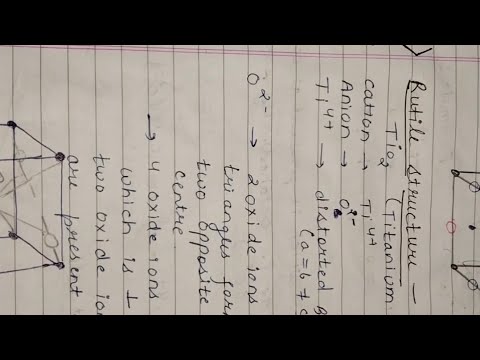 Rutile structure -
TiO2 (Titanium
cation → Ti4+
Anion → O2-
Ti4+ → distorted B
(a=b≠c
O2- → 2 oxide ions
triangles for
two opposite
centre.
→ 4 oxide ions
which is ⊥
two oxide ion
are present